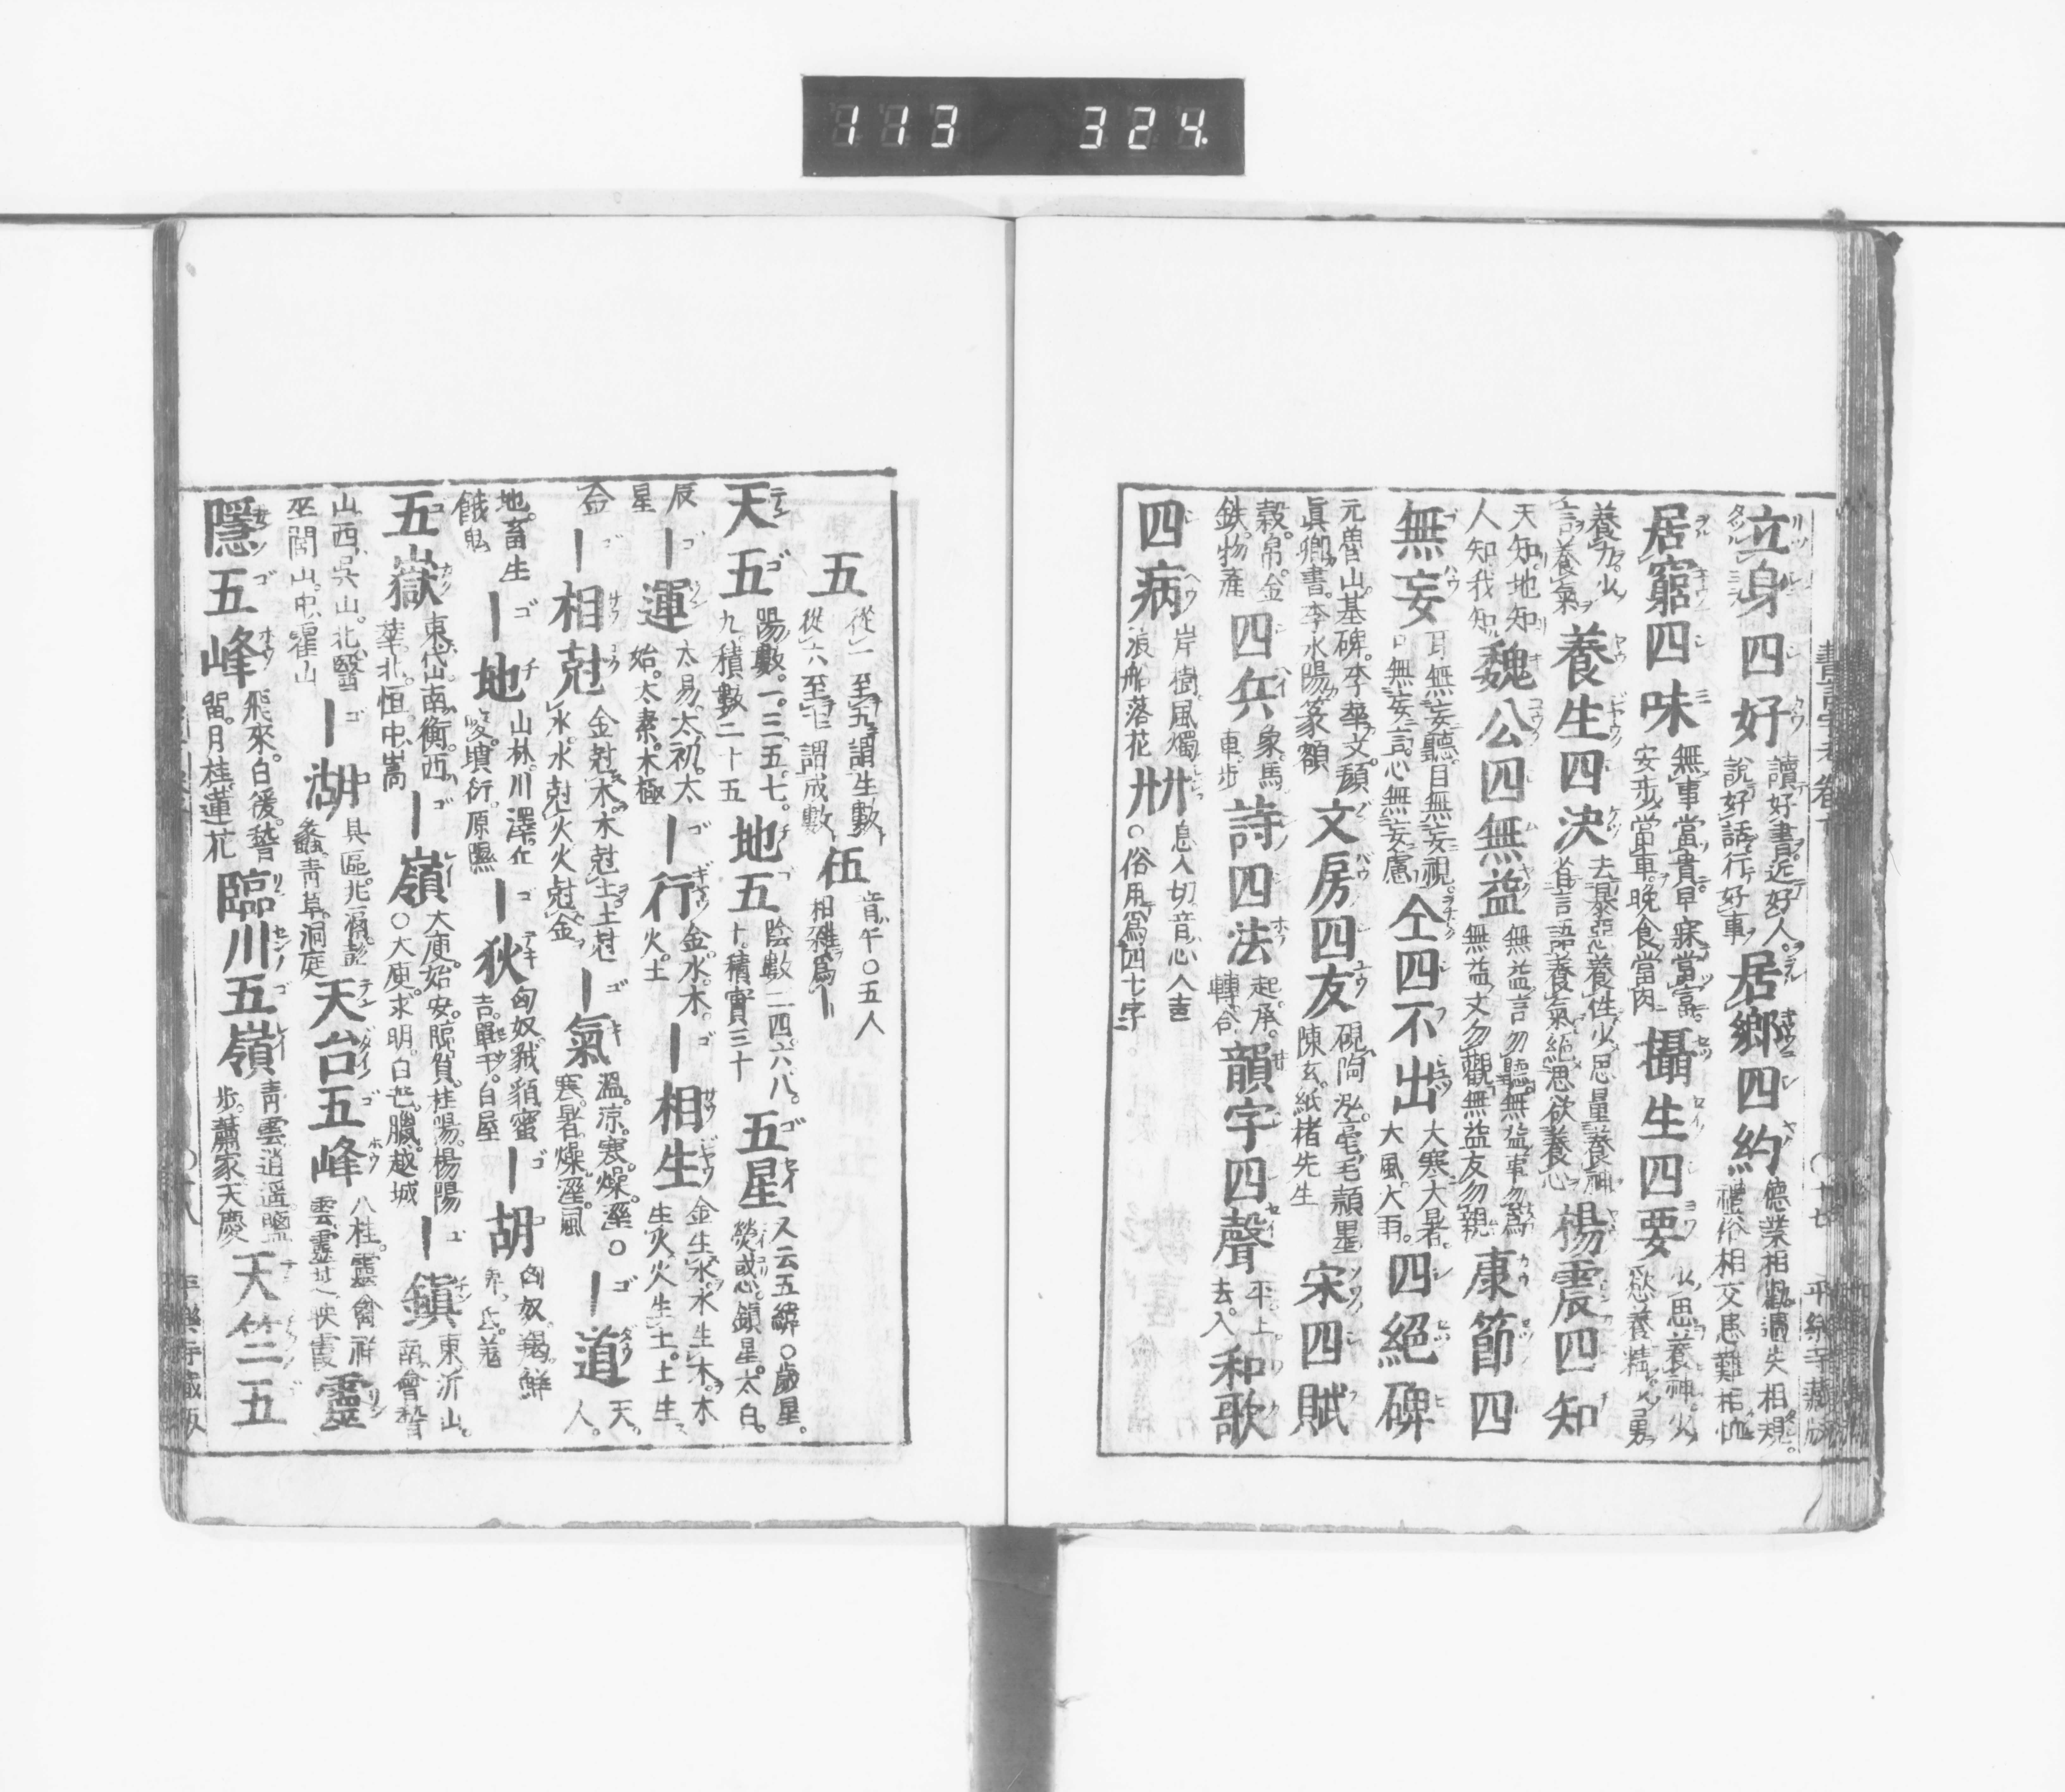 113 324
立身四好 讀好書近好人 說好話行好事 居鄉四約 德業相勸過失相規 禮俗相交患難相恤
居窮四味 無事當貴早寐當富 安步當車晚食當肉 攝生四要 少思養神少 慾養精少勞
養力少言養氣 養生四決 去暴惡養性少思量養神 省言語養氣絕思欲養心 楊震四知
天知地知 人知我知 魏公四無益 無益言勿聽無益事勿爲 無益文勿觀無益友勿親 康節四
無妄 耳無妄聽目無妄視 口無妄言心無妄慮 仝四不出 大寒大暑 大風大雨 四絕碑
元魯山墓碑李華文顏 眞卿書李水陽篆額 文房四友 硯陶泓毫毛穎墨 陳玄紙楮先生 宋四賦
穀帛金 鉄物產 四兵 象馬 車步 詩四法 起承 轉合 韻字四聲 平上 去入 和歌
四病 岸樹風燭 浪船落花 卌 息入切音心入 〇俗用爲四十字
五 從一至五謂生數 從六至十謂成數 伍 音午〇五人 相雜爲｜
天五 陽數一三五七 九積數二十五 地五 陰數二四六八 十積實三十 五星 又云五緯〇歲星 熒惑鎭星太白
辰星 ｜運 太易太初太 始太素木極 ｜行 金水木 火土 ｜相生 金生水水生木木 生火火生土土生
金 ｜相尅 金尅木木尅土土尅 水水尅火火尅金 ｜氣 溫涼寒燥溼〇 寒暑燥溼風 ｜道 天 人
地畜生 餓鬼 ｜地 山林川澤丘 陵墳衍原隰 ｜狄 匈奴穢貊蜜 吉單于白屋 ｜胡 匈奴羯鮮 卑氐羌
五嶽 東岱南衡西 華北恒中嵩 ｜嶺 大庾始安臨賀桂陽楊陽 〇大庾求明白芒臘越城 ｜鎭 東沂山 南會稽
山西吳山北醫 巫閭山中霍山 ｜湖 具區洮滆彭 蠡靑草洞庭 天台五峰 八桂靈禽祥 雲靈芝映霞 靈
隱五峰 飛來白猨稽 留月桂蓮花 臨川五嶺 靑雲逍遥鹽 步蕭家天慶 天竺五